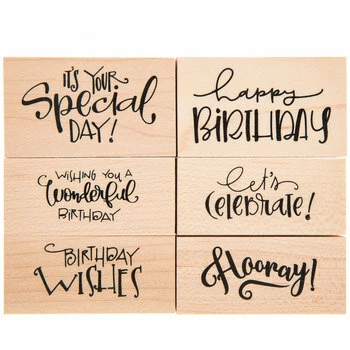 IT'S YOUR
Special
DAY!
happy
BIRTHDAY
WISHING YOU A
Wonderful
BIRTHDAY
let's
CELEBRATE!
BIRTHDAY
WISHES
Hooray!